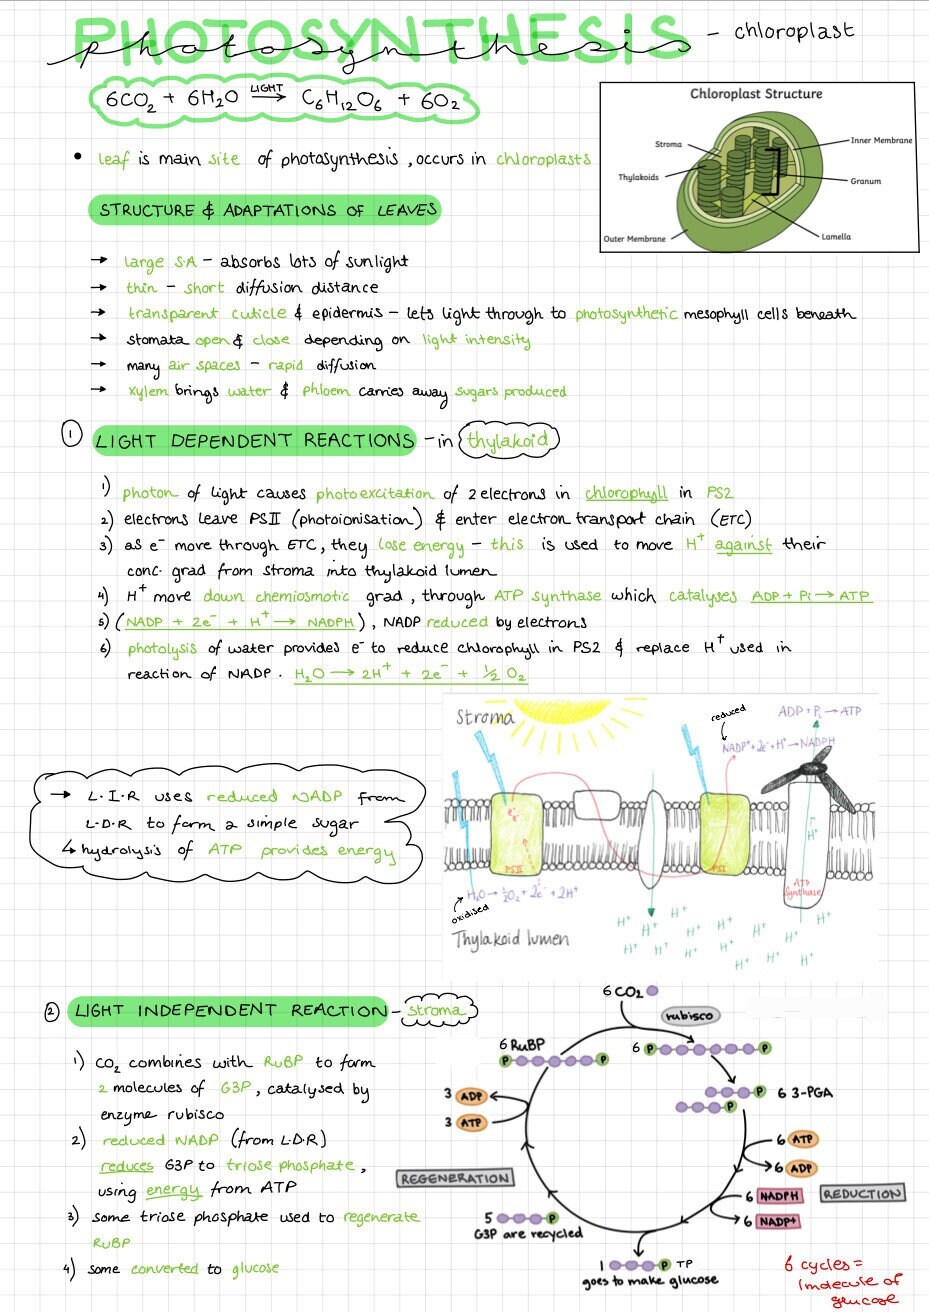 PHOTOSYNTHESIS
photosynthesis - chloroplast
6CO₂ + 6H₂O LIGHT → C₆H₁₂O₆ + 6O₂
• leaf is main site of photosynthesis, occurs in chloroplasts
Chloroplast Structure
Stroma
Inner Membrane
Thylakoids
Granum
Outer Membrane
Lamella
STRUCTURE & ADAPTATIONS OF LEAVES
→ large S.A - absorbs lots of sunlight
→ thin - short diffusion distance
→ transparent cuticle & epidermis - lets light through to photosynthetic mesophyll cells beneath
→ stomata open & close depending on light intensity
→ many air spaces - rapid diffusion
→ xylem brings water & phloem carries away sugars produced
① LIGHT DEPENDENT REACTIONS - in thylakoid
1) photon of light causes photoexcitation of 2 electrons in chlorophyll in PS2
2) electrons leave PSII (photoionisation) & enter electron transport chain (ETC)
3) as e⁻ move through ETC, they lose energy - this is used to move H⁺ against their
conc. grad from stroma into thylakoid lumen
4) H⁺ move down chemiosmotic grad, through ATP synthase which catalyses ADP + Pi → ATP
5) (NADP + 2e⁻ + H⁺ → NADPH), NADP reduced by electrons
6) photolysis of water provides e⁻ to reduce chlorophyll in PS2 & replace H⁺ used in
reaction of NADP. H₂O → 2H⁺ + 2e⁻ + ½ O₂
→ L.I.R uses reduced NADP from
L.D.R to form a simple sugar
↳ hydrolysis of ATP provides energy
Stroma
reduced
ADP + Pi → ATP
NADP⁺ + 2e⁻ + H⁺ → NADPH
e⁻
e⁻
H⁺
PSII
PSI
ATP
Synthase
H₂O → ½O₂ + 2e⁻ + 2H⁺
oxidised
Thylakoid lumen
H⁺ H⁺ H⁺ H⁺
H⁺ H⁺ H⁺ H⁺
H⁺ H⁺ H⁺ H⁺ H⁺
② LIGHT INDEPENDENT REACTION - stroma
1) CO₂ combines with RuBP to form
2 molecules of G3P, catalysed by
enzyme rubisco
2) reduced NADP (from L.D.R)
reduces G3P to triose phosphate,
using energy from ATP
3) some triose phosphate used to regenerate
RuBP
4) some converted to glucose
6 CO₂
rubisco
6 RuBP
P P
6 P P
3 ADP
3 ATP
P
P
6 3-PGA
6 ATP
6 ADP
REGENERATION
6 NADPH
REDUCTION
6 NADP+
5 P
G3P are recycled
1 P TP
goes to make glucose
6 cycles =
1 molecule of
glucose